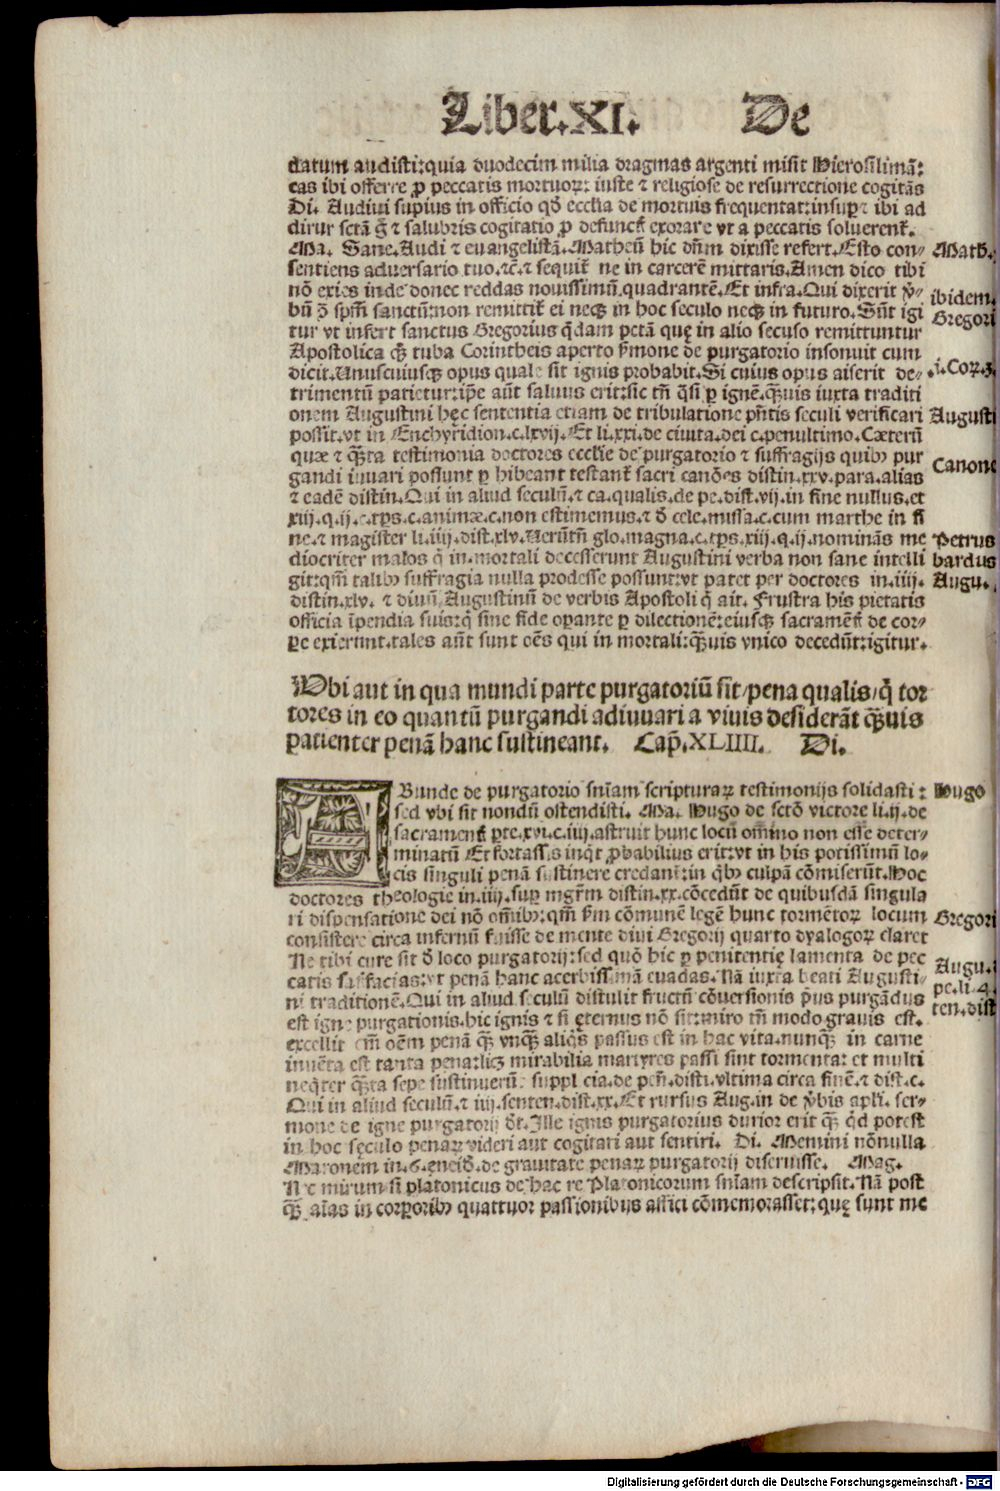 Liber.XI. De
datum audisti:quia duodecim milia dragmas argenti misit Hierosilimā:
eas ibi offerre ꝓ peccatis mortuoꝝ: iuste ⁊ religiose de resurrectione cogitās
Di. Audiui supius in officio qd̄ ecclīa de mortuis frequentat:insuꝑ ⁊ ibi ad
dirur sctā g̃ ⁊ salubris cogitatio ꝓ defunct̄ exorare vt a peccatis soluerent᷑.
Ma. Sane.Audi ⁊ euangelistā.Matheū hic dn̄m dixisse refert.Esto con- Math.
sentiens aduersario tuo.⁊c̄.⁊ sequit᷑ ne in carcerē mittaris.Amen dico tibi
nō exies inde donec reddas nouissimū.quadrantē.Et infra.Qui dixerit v̄- ibidem.
bū ɔ̄ spm̄ sanctū:non remittit᷑ ei neqꝫ in hoc seculo neqꝫ in futuro.Sūt igi Gregori
tur vt infert sanctus Gregorius q̄dam pctā quę in alio seculo remittuntur
Apostolica qꝫ tuba Corintheis aperto s̄mone de purgatorio insonuit cum
dicit.Unusciuiusqꝫ opus quale sit ignis probabit.Si cuius opus aiserit de- .i.Coꝝ.3.
trimentū patietur:ip̄e aūt saluus erit:sic tn̄ q̄si ꝑ ignē.qꝫuis iuxta traditi
onem Augustini hęc sententia etiam de tribulatione pn̄tis seculi verificari Augusti
possit.vt in Enchyridion.c.lxvij.Et li.xxi.de ciuita.dei c.penultimo.Cæterū
quæ ⁊ qꝫta testimonia doctores ecclīe de purgatorio ⁊ suffragijs quibꝰ pur
gandi iuuari possunt ꝑ hibeant testant᷑ sacri canōes distin.xxv.para.alias Canone
⁊ eadē distin.Qui in aliud seculū.⁊ ca.qualis.de pe.dist.vij.in fine nullus.et
xiij.q.ij.c.tp̄s.c.animæ.c.non estimemus.⁊ d̄ cele.missa.c.cum marthe in fi
ne.⁊ magister li.iiij.dist.xlv.Uerūtn̄ glo.magna.c.tp̄s.xiij.q.ij.nominās me Petrus
diocriter malos q̄ in mortali decesserunt Augustini verba non sane intelli bardus
git:qm̄ talibꝰ suffragia nulla prodesse possunt:vt patet per doctores in.iiij. Augu.
distin.xlv. ⁊ diuū Augustinū de verbis Apostoli q̄ ait. Frustra his pietatis
officia īpendia suis:q̄ sine fide oꝑante ꝑ dilectionē:eiusqꝫ sacramēt̄ de cor-
ꝑe exierunt.tales aūt sunt oēs qui in mortali:qꝫuis vnico decedūt:igitur.
Ubi aut in qua mundi parte purgatoriū sit/pena qualis/q̄ tor
tores in eo quantū purgandi adiuuari a viuis desiderāt qꝫuis
patienter penā hanc sustineant. Cap̄.XLIIII. Di.
ABunde de purgatorio sn̄iam scripturaꝝ testimonijs solidasti: Hugo
sed vbi sit nondū ostendisti. Ma. Hugo de sctō victore li.ij.de
sacrament̄ ꝑte.xvi.c.iiij.astruit hunc locū om̄ino non esse deter-
minatū Et fortassis inqt̄ ꝓbabilius erit:vt in his potissimū lo-
cis singuli penā sustinere credant᷑:in qbꝰ culpā cōmiserūt.Hoc
doctores theologie in.iiij.suꝑ mgr̄m distin.xx.cōcedūt de quibusdā singula
ri dispensatione dei nō om̄ibꝰ:qm̄ s̄m cōmunē legē hunc tormētoꝝ locum Gregori
consistere circa infernū fuisse de mente diui Gregorij quarto dyalogoꝝ claret
Ne tibi cure sit d̄ loco purgatorij:sed quō hic ꝑ penitentię lamenta de pec
catis satisfacias:vt penā hanc acerbissimā euadas.Nā iuxta beati Augusti- Augu.
ni traditionē.Qui in aliud seculū distulit fructū cōuersionis p̄us purgādus pe.li.4.
est igne purgationis.hic ignis ⁊ si ęternus nō sit:miro tn̄ modo grauis est. ten.dist
excellit em̄ oēm penā qꝫ vnqꝫ aliqs̄ passus est in hac vita.nunqꝫ in carne
inuēta est tanta pena:licꝫ mirabilia martyres passi sint tormenta: et multi
neqter qꝫta sepe sustinuerūt suppl cia.de pen̄.disti.vltima circa finē.⁊ dist.c.
Qui in aliud seculū.⁊ iiij.senten.dist.xx.Et rursus Aug.in de v̄bis apli. ser-
mone de igne purgatorij dt̄.Ille ignis purgatorius durior erit qꝫ qd̄ potest
in hoc sęculo penaꝝ videri aut cogitari aut sentiri. Di. Memini nōnulla
Maronem in.6.eneid̄.de grauitate penaꝝ purgatorij diseruisse. Mag.
Ne mirum si platonicus de hac re Platonicorum sn̄iam descripsit.Nā post
qꝫ aīas in corꝑoribꝰ quattuor passionibus affici cōmemorasset:quę sunt me
Digitalisierung gefördert durch die Deutsche Forschungsgemeinschaft - DFG